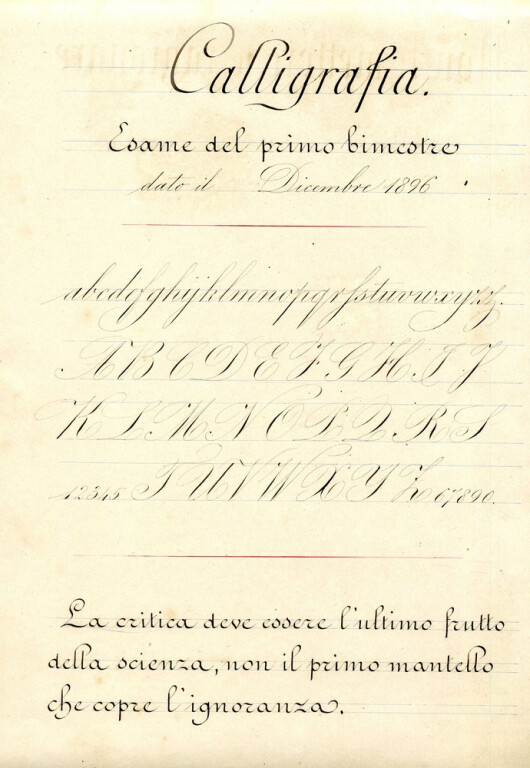 Calligrafia.
Esame del primo bimestre
dato il Dicembre 1896
abcdefghijklmnopqrſstuvwxyzz.
A B C D E F G H I J
K L M N O P Q R S
12345 T U V W X Y Z 67890.
La critica deve essere l'ultimo frutto
della scienza, non il primo mantello
che copre l'ignoranza.